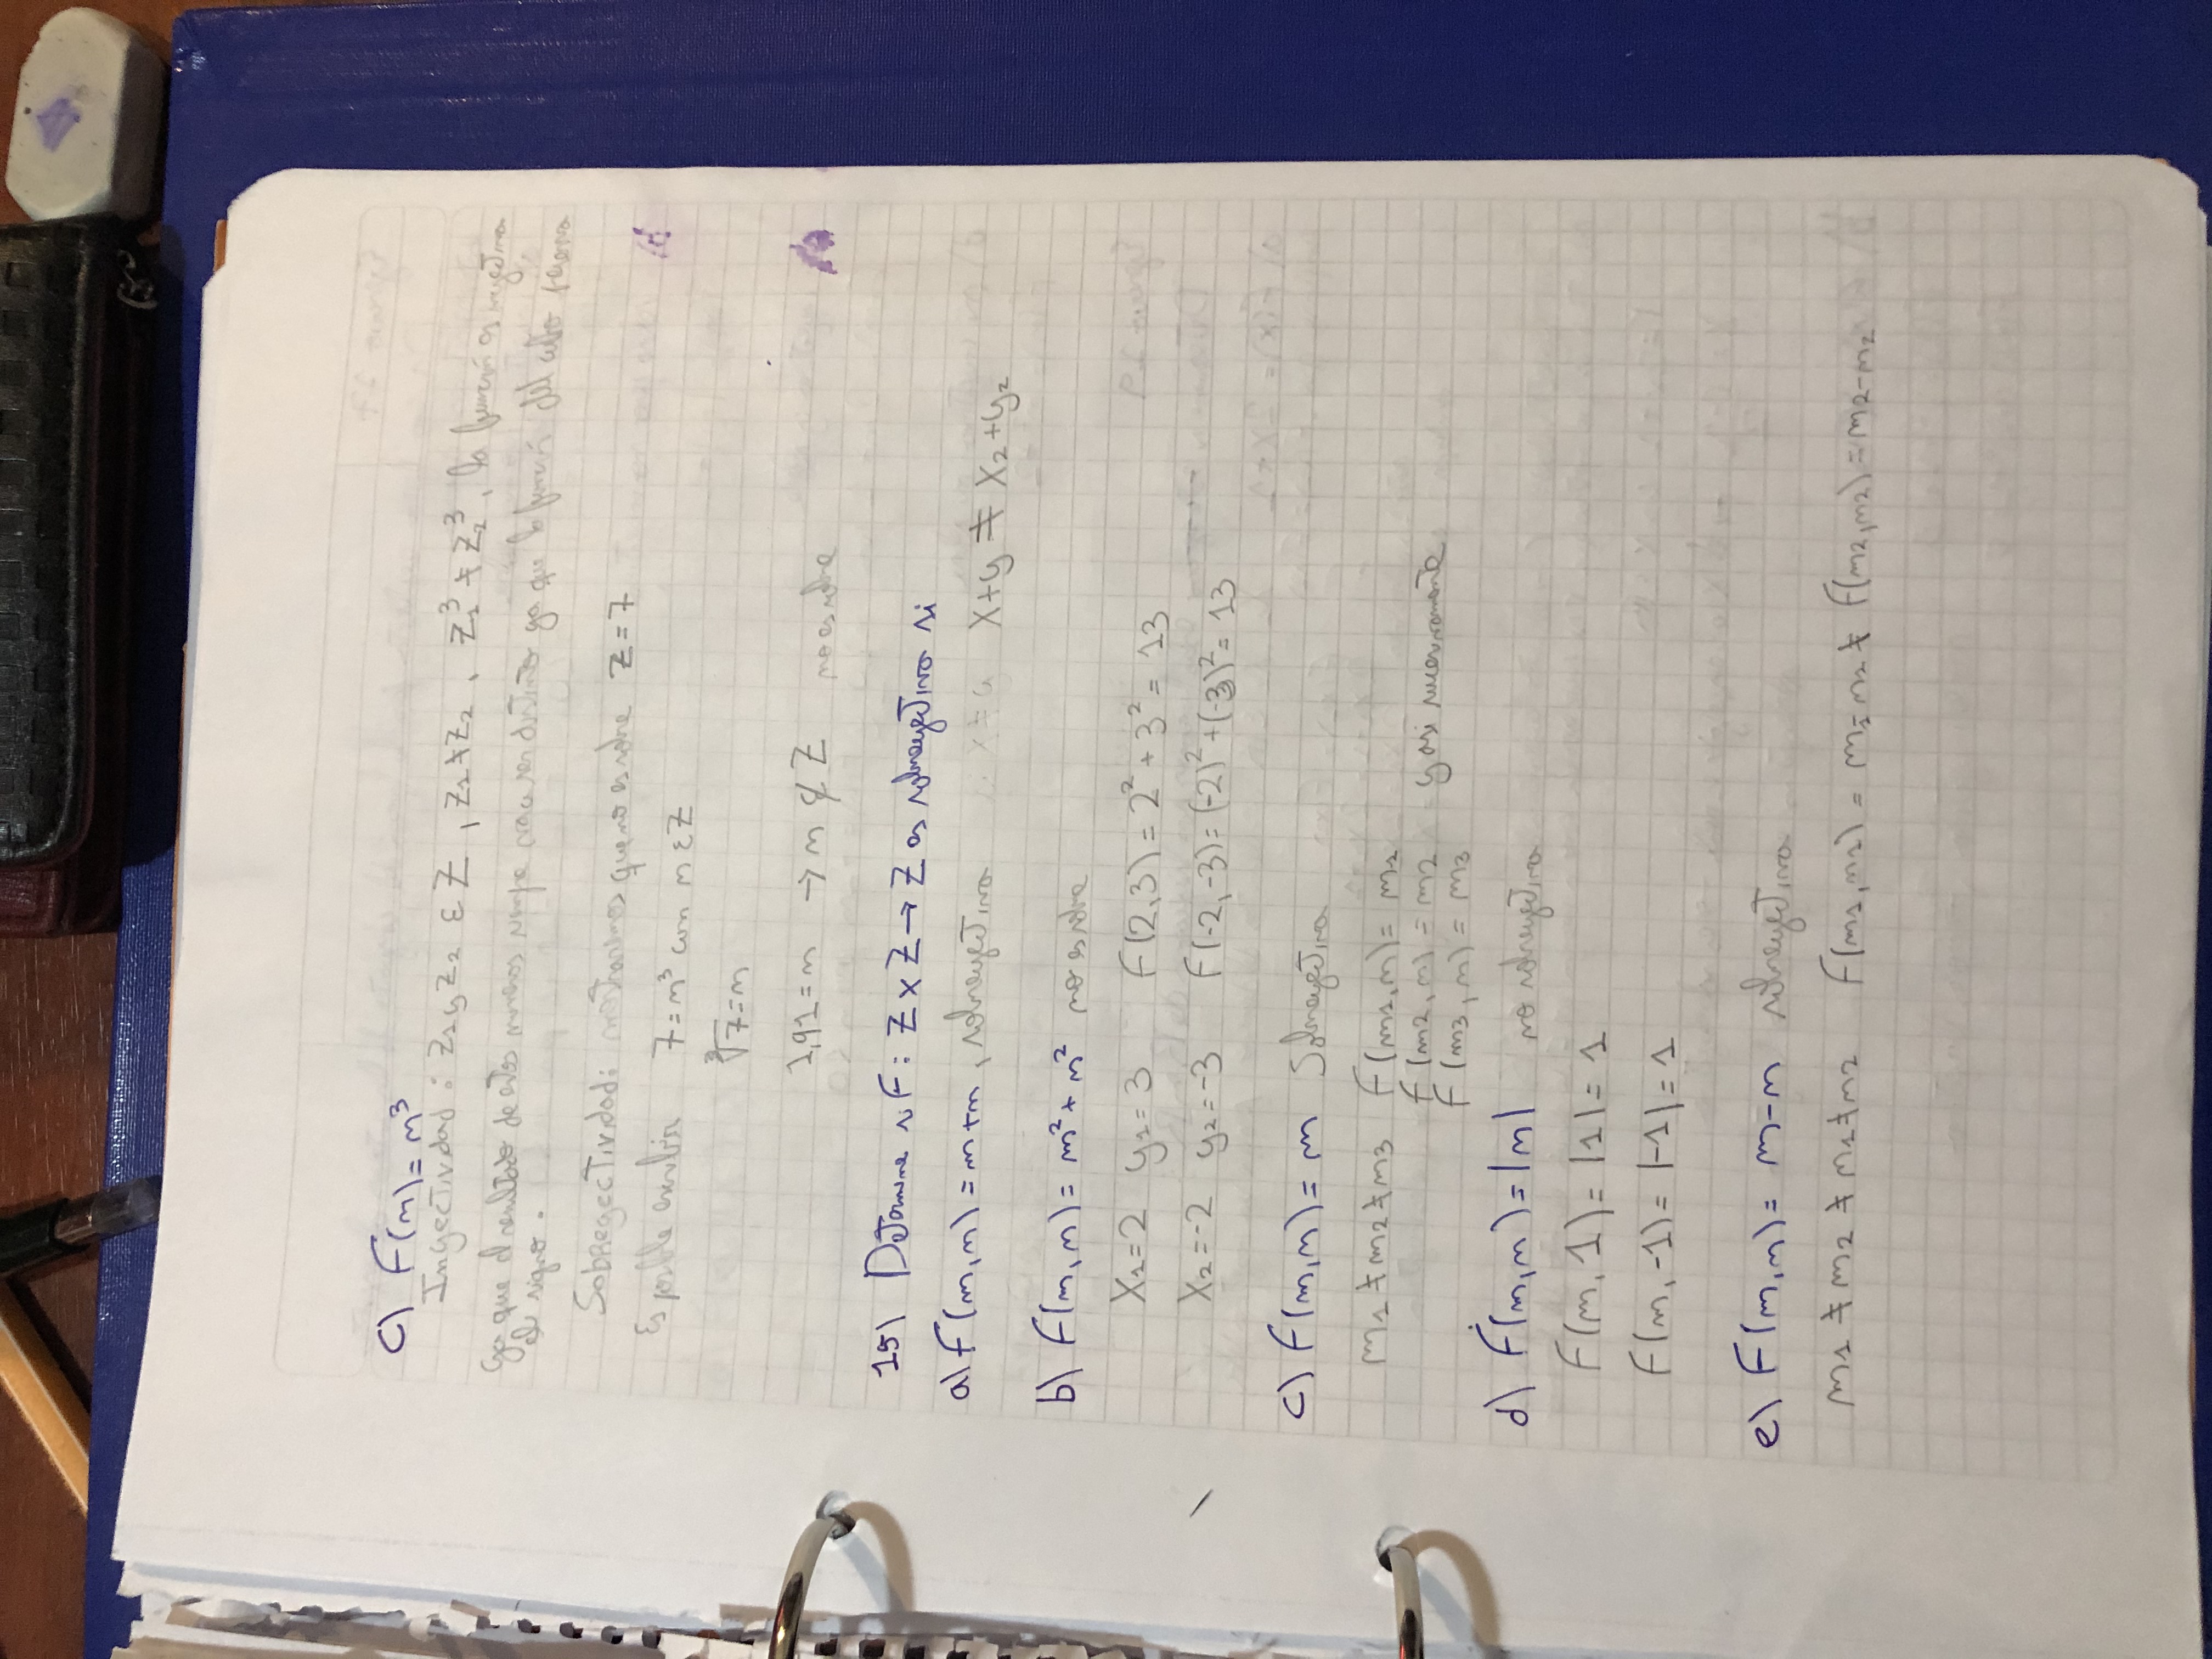 c) F(n) = n³
Inyectividad: Z₁ y Z₂ ∈ Z, Z₁≠Z₂, Z₁³ ≠ Z₂³, la función es inyectiva
ya que el resultado de estos numeros siempre va a ser distinto ya que la función del cubo
el signo.
Sobreyectividad: mostraremos que no es sobre Z = 7
Es posible escribir 7 = n³ con n ∈ Z
³√7 = n
1,91 = n → n ∉ Z no es sobre
15) Determine si F: Z x Z → Z es sobreyectiva si
a) F(m,n) = m+n, sobreyectiva x ≠ y x+y ≠ x₂+y₂
b) F(m,n) = m² + n² no es sobre
X₁=2 y₁=3 F(2,3) = 2² + 3² = 13
X₂=-2 y₂=-3 F(-2,-3) = (-2)² + (-3)² = 13
c) F(m,n) = m Sobreyectiva
m₁ ≠ m₂ ≠ m₃ F(m₁,n) = m₁
F(m₂,n) = m₂ y asi sucesivamente
F(m₃,n) = m₃
d) F(m,n) = |n| no sobreyectiva
F(m,1) = |1| = 1
F(m,-1) = |-1| = 1
e) F(m,n) = m-n sobreyectiva
m₁ ≠ m₂ ≠ n₁ ≠ n₂ F(m₁,n₁) = m₁-n₁ ≠ F(m₂,n₂) = m₂-n₂